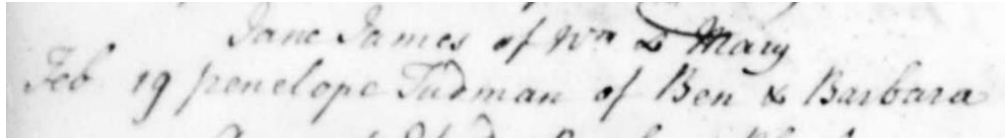 Jane James of Wm & Mary
Feb 19 penelope Tudman of Ben & Barbara